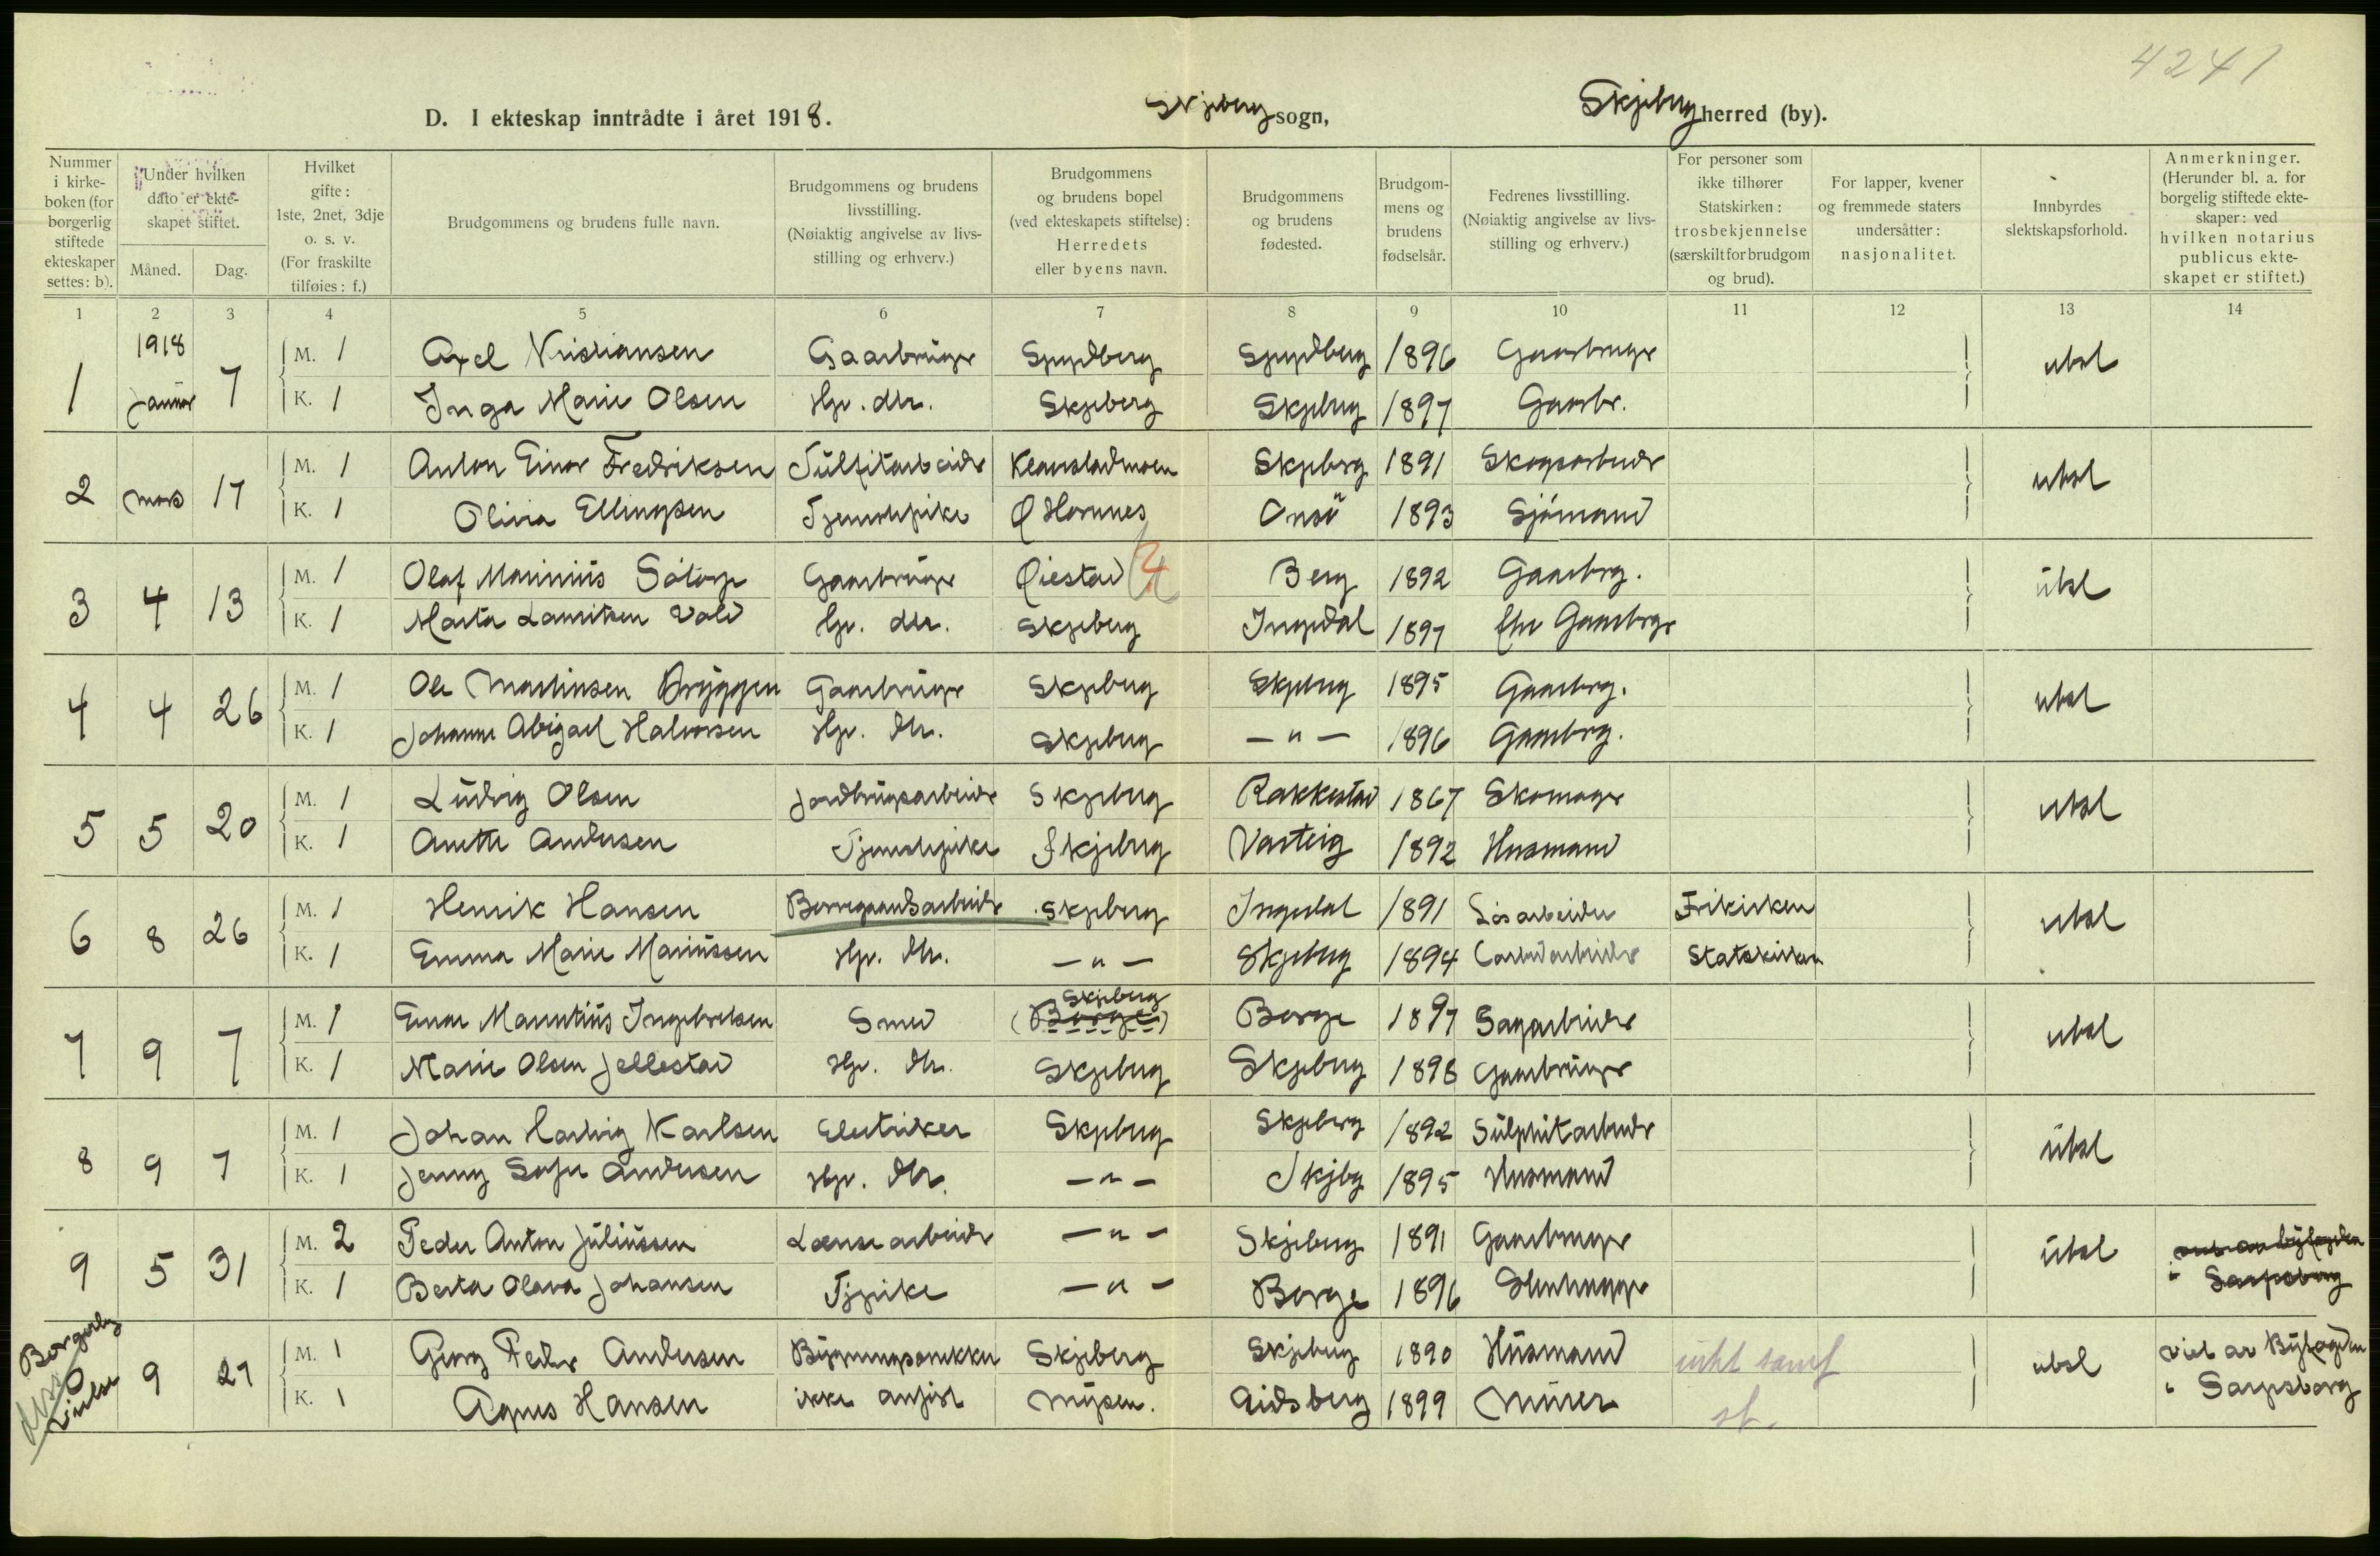 4241
D. I ekteskap inntrådte i året 1918. Skjeberg sogn, Skjeberg herred (by).
Nummer i kirkeboken (for borgerlig stiftede ekteskaper settes: b).
Under hvilken dato er ekteskapet stiftet.
Måned.
Dag.
Hvilket gifte: 1ste, 2net, 3dje o. s. v. (For fraskilte tilføies: f.)
Brudgommens og brudens fulle navn.
Brudgommens og brudens livsstilling. (Nøiaktig angivelse av livsstilling og erhverv.)
Brudgommens og brudens bopel (ved ekteskapets stiftelse): Herredets eller byens navn.
Brudgommens og brudens fødested.
Brudgommens og brudens fødselsår.
Fedrenes livsstilling. (Nøiaktig angivelse av livsstilling og erhverv.)
For personer som ikke tilhører Statskirken: trosbekjennelse (særskilt for brudgom og brud).
For lapper, kvener og fremmede staters undersåtter: nasjonalitet.
Innbyrdes slektskapsforhold.
Anmerkninger. (Herunder bl. a. for borgelig stiftede ekteskaper: ved hvilken notarius publicus ekteskapet er stiftet.)
1 2 3 4 5 6 7 8 9 10 11 12 13 14
1 1918 Januar 7 M. 1 Axel Kristiansen Gaarbruger Spydberg Spydberg 1896 Gaarbruger ubsl
K. 1 Inga Marie Olsen Hjv. dtr. Skjeberg Skjeberg 1897 Gaarbr.
2 mars 17 M. 1 Anton Einar Fredriksen Sulfitarbeider Klavestadmoen Skjeberg 1891 Skogsarbeider ubsl
K. 1 Olivia Ellingsen Tjenestepike Ø Hornnes Onsö 1893 Sjömand
3 4 13 M. 1 Olaf Marinius Sötorp Gaarbruger Øiestad 4 Berg 1892 Gaarbrg. ubsl
K. 1 Marta Lauritsen Vold Hjv. dtr. Skjeberg Ingedal 1897 Gaarbrgr
4 4 26 M. 1 Ole Martinsen Bryggen Gaarbruger Skjeberg Skjeberg 1895 Gaarbrg. ubsl
K. 1 Johanne Abigael Halvorsen Hjv. dtr. Skjeberg — " — 1896 Gaarbrg.
5 5 20 M. 1 Ludvig Olsen Jordbrugsarbeider Skjeberg Rakkestad 1867 Skomager ubsl
K. 1 Anette Andersen Tjenestepike Skjeberg Varteig 1892 Husmand
6 8 26 M. 1 Henrik Hansen Borregaardsarbeider Skjeberg Ingedal 1891 Løsarbeider Frikirken ubsl
K. 1 Emma Marie Mariussen Hjv. dtr. — " — Skjeberg 1894 Carbidarbeider Statskirken
7 9 7 M. 1 Einar Mauritius Ingebretsen Smed Skjeberg (Borge) Borge 1897 Sagarbeider ubsl
K. 1 Marie Olsen Jellestad Hjv. dtr. Skjeberg Skjeberg 1898 Gaarbruger
8 9 7 M. 1 Johan Hartvig Karlsen Elektriker Skjeberg Skjeberg 1892 Sulphitarbeider ubsl
K. 1 Jenny Sofie Andersen Hjv. dtr. — " — Skjbg 1895 Husmand
9 5 31 M. 2 Peder Anton Juliussen Lensearbeider — " — Skjeberg 1891 Gaarbruger ubsl
K. 1 Berta Olava Johansen Tjpike — " — Borge 1896 Stenhugger i Sarpsborg
Borgerlig vielse 9 27 M. 1 Georg Peder Andersen Bygningssnekker Skjeberg Skjeberg 1890 Husmand ubsl viet av Byfogden
K. 1 Agnes Hansen ikke anført Mysen. Eidsberg 1899 Murer st. i Sarpsborg